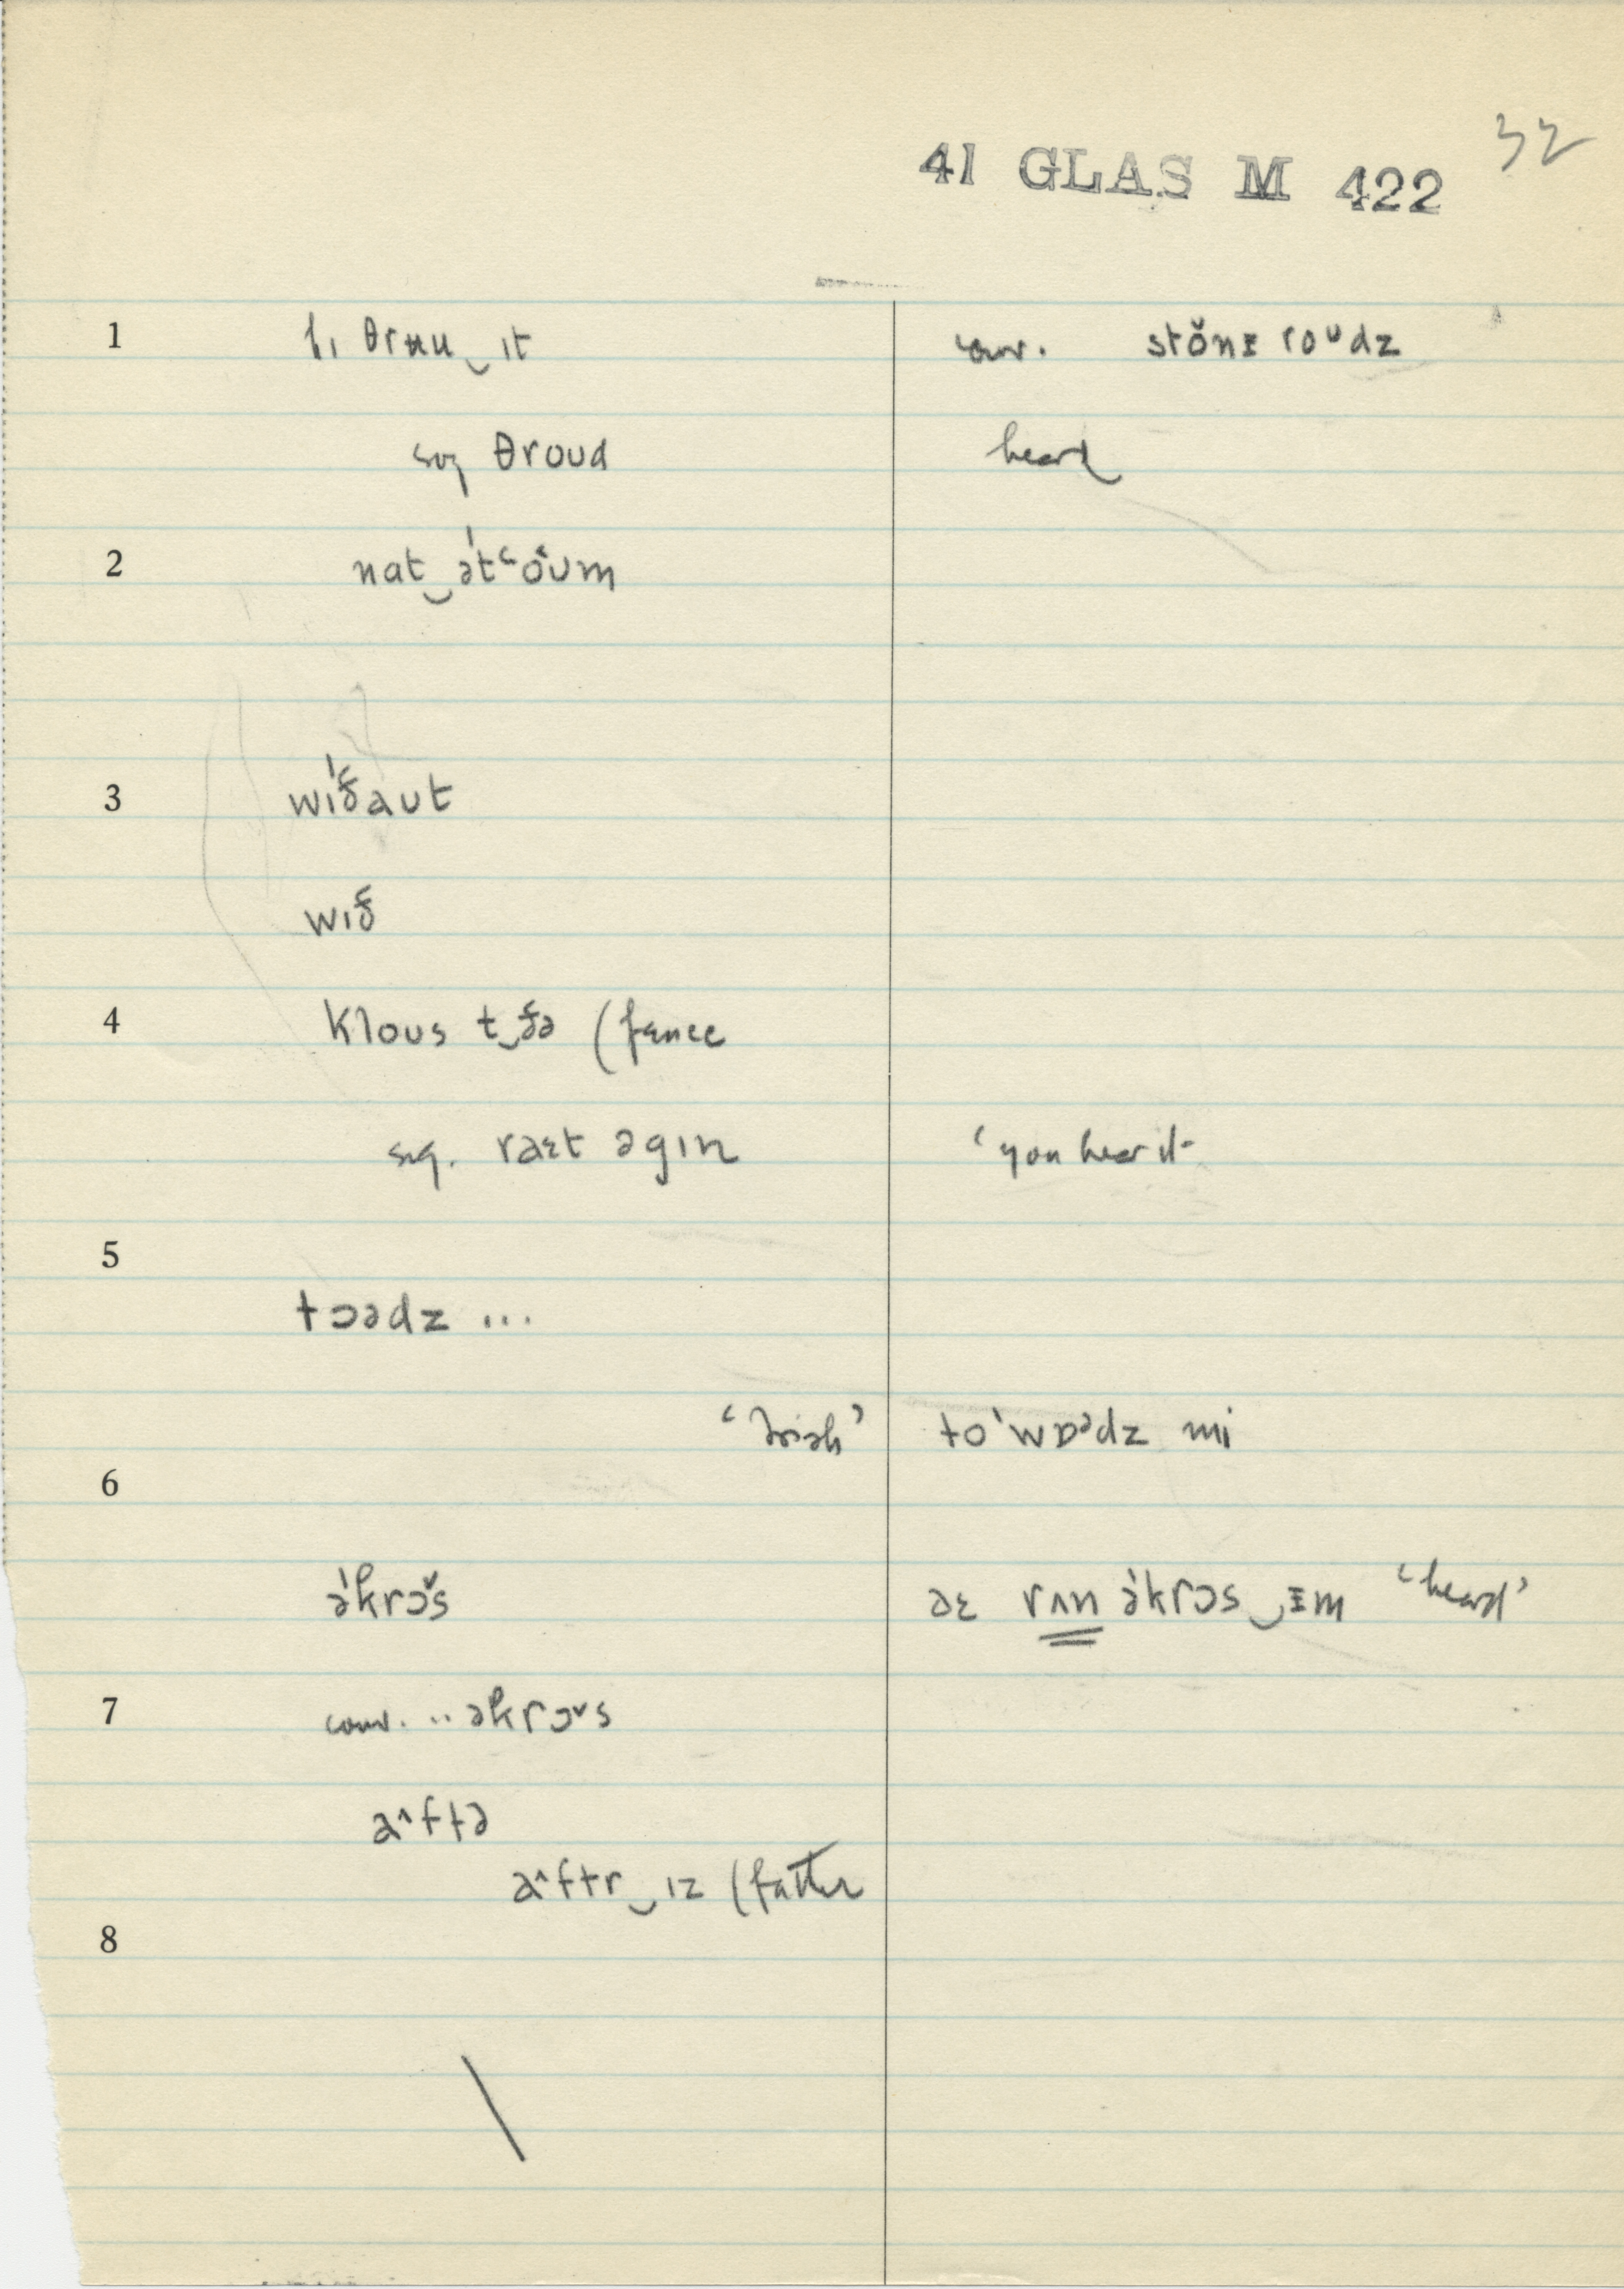 32
41 GLAS M 422
1 hi θrʉu‿ıt conv. stŏnɪ roᴜdz
sug θroud heard
2 nat‿ə't‛o᷾ʊm
3 wı'ð᷾aut
wıð᷾
4 klous t‿ð᷾ə (fence
sug. raɛt əgın ‘you hear it
5
tɔədz ...
‘Irish’ to'wɒᵊdz mi
6
ə'krɔ̌s aɛ rʌn ə'krɔs‿ɪm ‘heard’
7 conv. .. əkrɔˇs
a^ftə
a^ftr‿ız (father
8